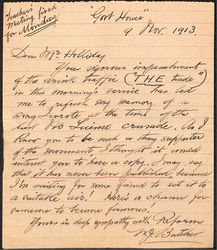 Teachers
Meeting fixed
for Monday
"Govt House"
9 Nov. 1913.
Dear Mr Holliday
Your vigorous impeachment
of the drink traffic ("THE trade")
in this morning's service has led
me to refresh my memory of a
song I wrote at the time of the
last No License Crusade. As I
know you to be such a staunch supporter
of the movement, I thought it would
interest you to have a copy. I may say
that it has never been published because
I'm waiting for some genius to set it to
a suitable air. Here's a chance for
someone to become famous!
Yours in deep sympathy with Reform
Butcher